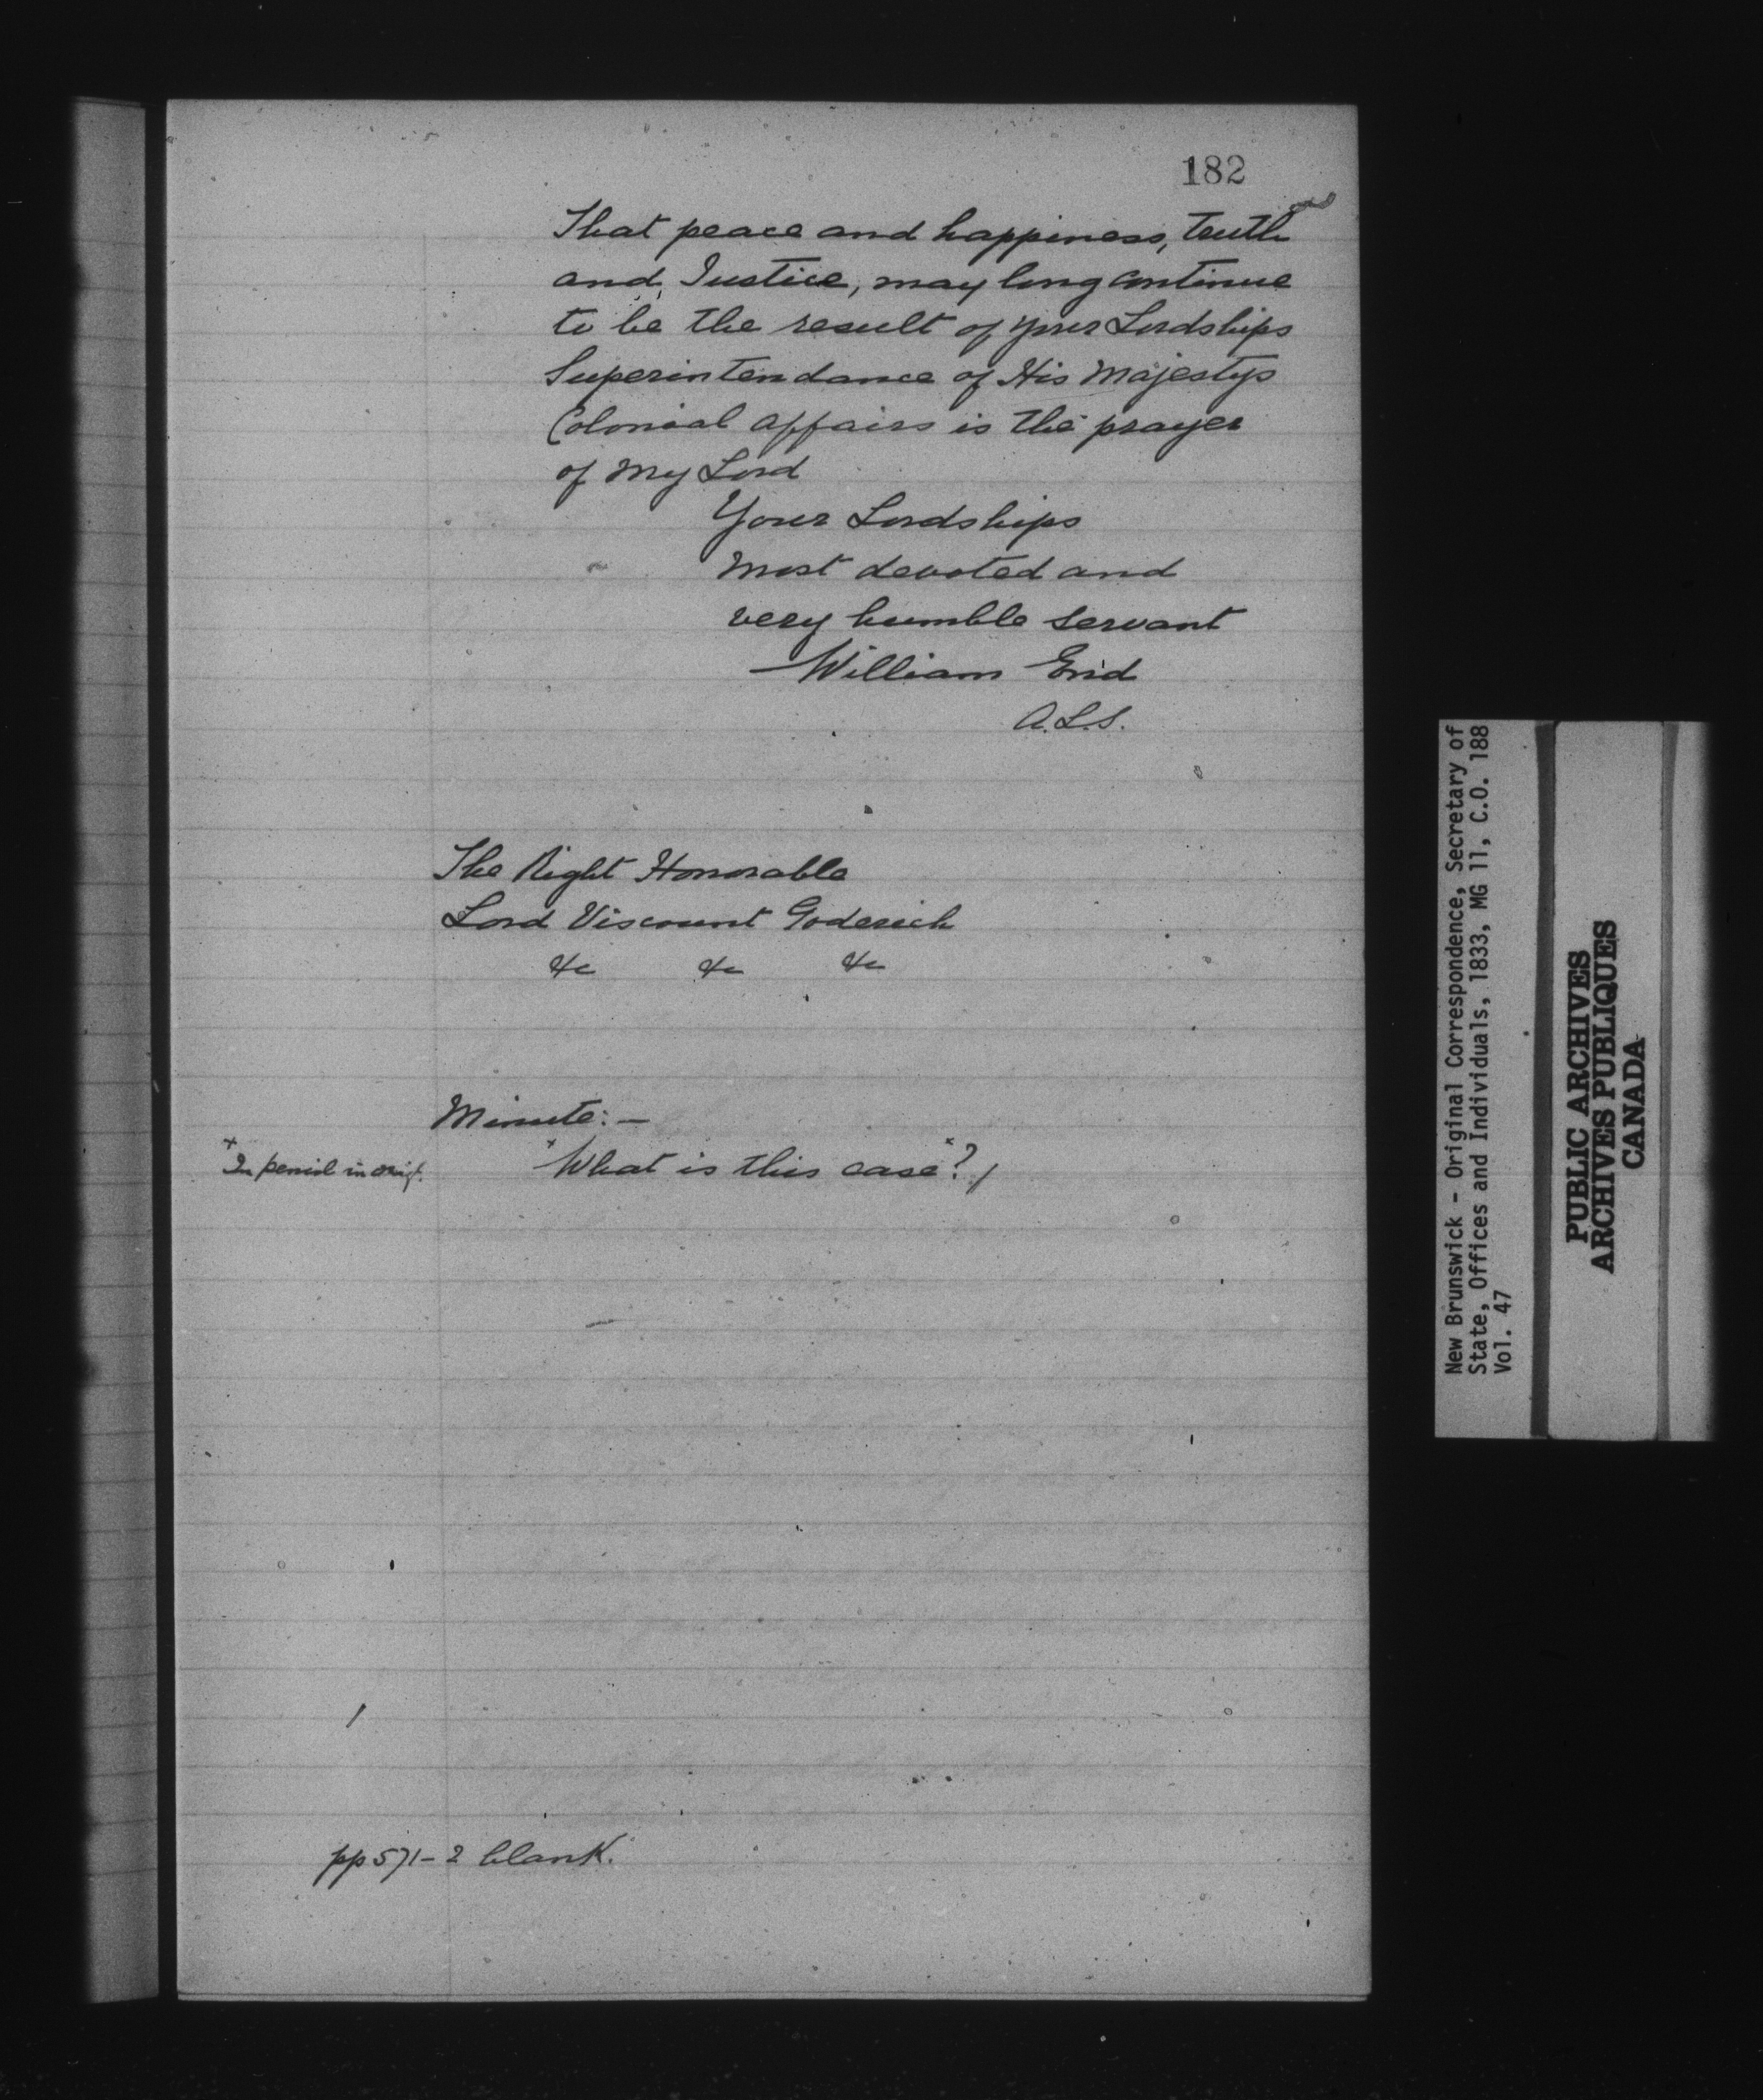 182
That peace and happiness, truth
and Justice, may long continue
to be the result of your Lordships
Superintendance of His Majestys
Colonial affairs is the prayer
of My Lord
Your Lordships
Most devoted and
very humble servant
William End
A.L.S.
The Right Honorable
Lord Viscount Goderich
&c &c &c
Minute: —
x In pencil in orig.
x What is this case x ? /
pp 571-2 blank.
New Brunswick - Original Correspondence, Secretary of
State, Offices and Individuals, 1833, MG 11, C.O. 188
Vol. 47
PUBLIC ARCHIVES
ARCHIVES PUBLIQUES
CANADA